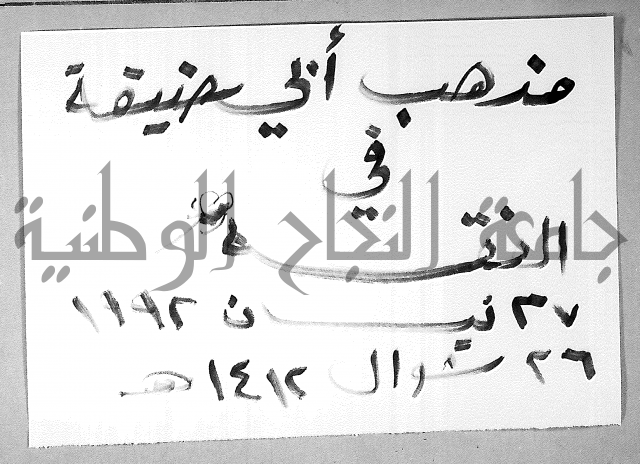 مذهب أبي حنيفة
في
الفقه
جامعة النجاح الوطنية
٢٧ نيسان ١٩٩٢
٢٦ شوال ١٤١٢ هـ